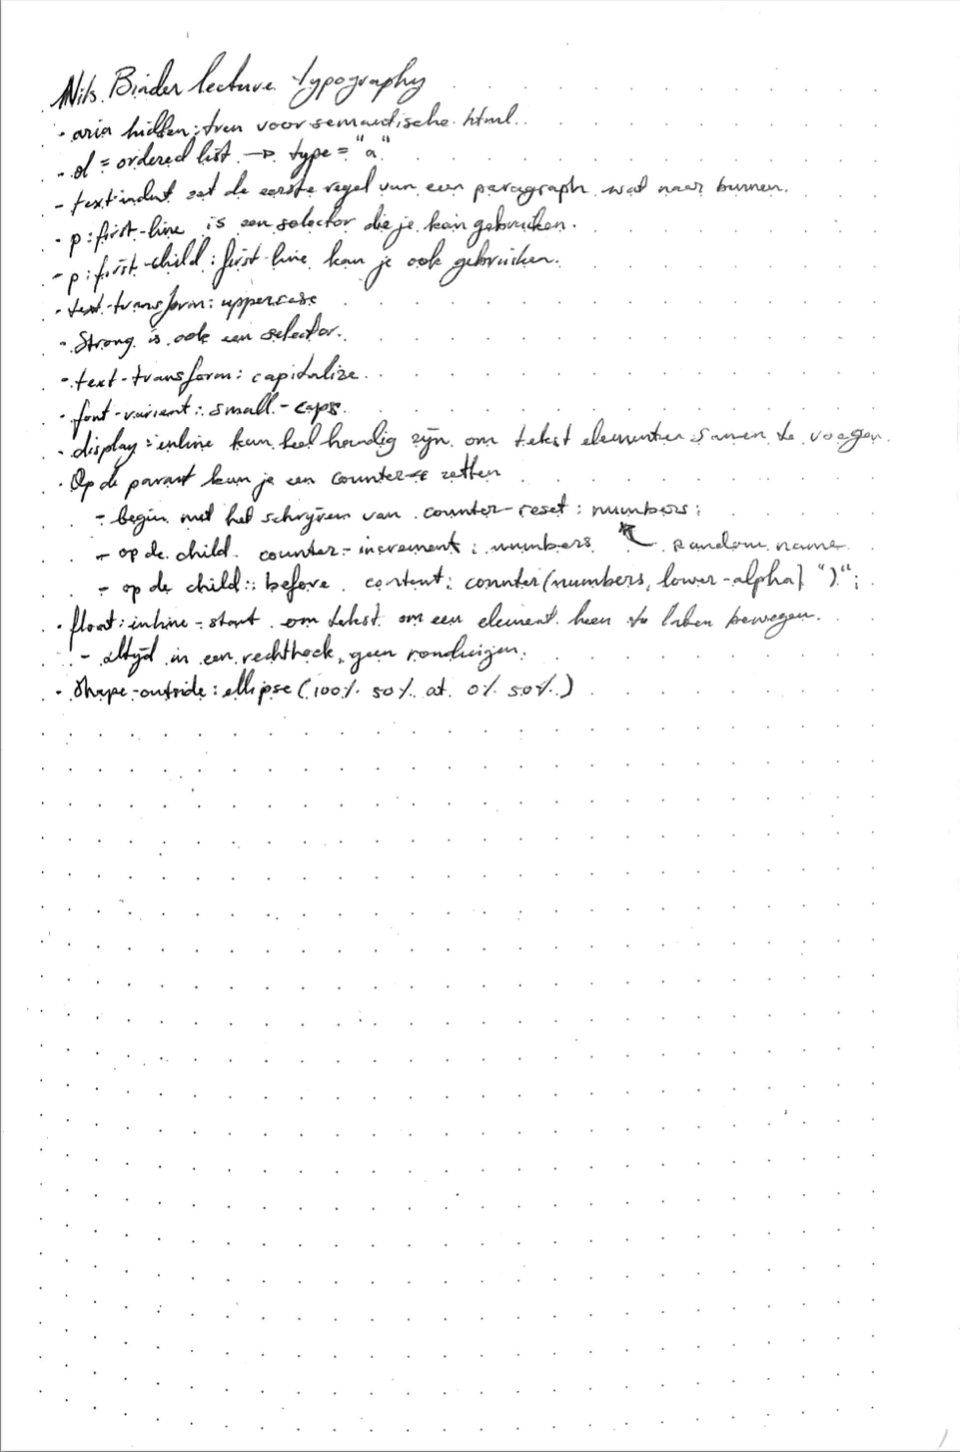 Nils Binder lecture typography
· aria hidden: true voor semantische html.
· ol = ordered list → type = "a"
- text indent zet de eerste regel van een paragraph wat naar binnen.
· p:first-line is een selector die je kan gebruiken.
- p:first-child:first-line kan je ook gebruiken.
· text-transform: uppercase
- Strong is ook een selector.
- text-transform: capitalize
· font-variant: small-caps
· display: inline kan heel handig zijn om tekst elementen samen te voegen
· Op de parant kan je een counter zetten
- begin met het schrijven van counter-reset: numbers;
- op de child counter-increment: numbers ↖ random name
- op de child::before content: counter(numbers, lower-alpha) ")";
· float: inline-start om tekst om een element heen te laten bewegen.
- altijd in een rechthoek, geen rondingen.
· Shape-outside: ellipse (100% 50% at 0% 50%)